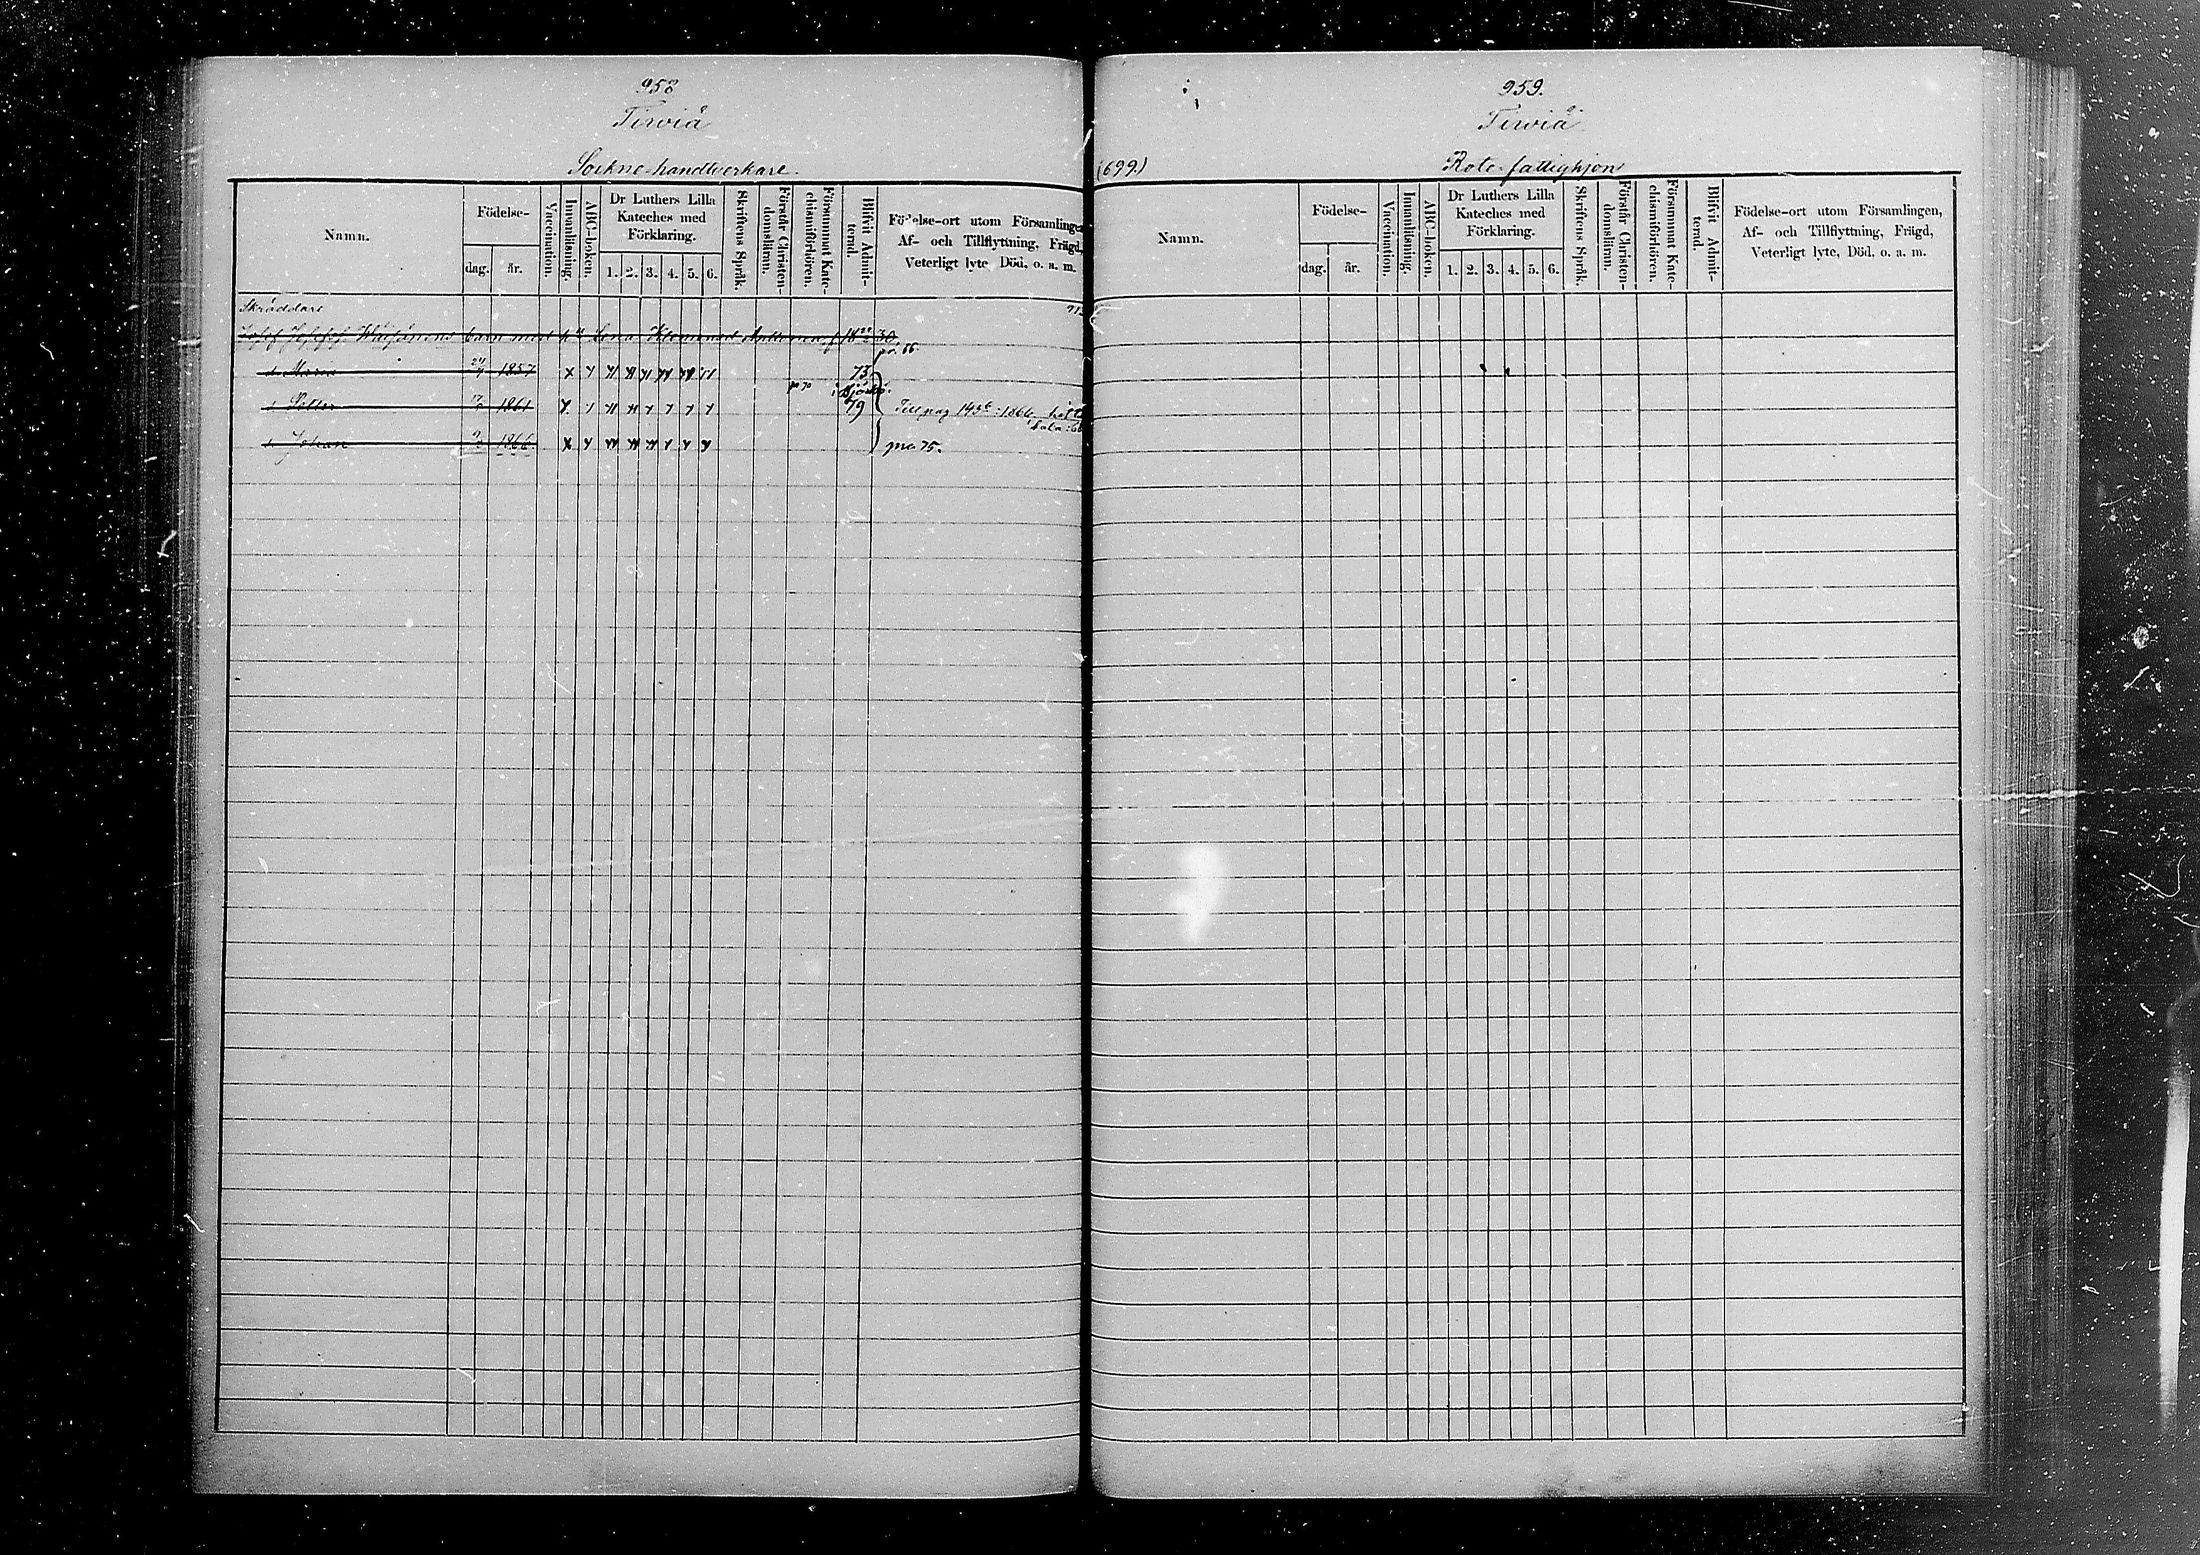 958
Tirviä
Sockne-handtverkare.
Namn.
Födelse-
dag.
år.
Vaccination.
Innanläsning.
ABC-boken.
Dr Luthers Lilla
Kateches med
Förklaring.
1. 2. 3. 4. 5. 6.
Skriftens Språk.
Förstår Christen-
domsläran.
Försummat Kate-
chismiförhören.
Blifvit Admit-
terad.
Födelse-ort utom Församlingen,
Af- och Tillflyttning, Frägd,
Veterligt lyte, Död, o. a. m.
Skräddare
barn med
Lena
pr. 66.
Maria 1857 73
pr 70
Petter 1861 79 Till pag 1456: 1866
Johan 1866 pr. 75.
959.
Tirviä
(699.)
Rote-fattighjon
Namn.
Födelse-
dag.
år.
Vaccination.
Innanläsning.
ABC-boken.
Dr Luthers Lilla
Kateches med
Förklaring.
1. 2. 3. 4. 5. 6.
Skriftens Språk.
Förstår Christen-
domsläran.
Försummat Kate-
chismiförhören.
Blifvit Admit-
terad.
Födelse-ort utom Församlingen,
Af- och Tillflyttning, Frägd,
Veterligt lyte, Död, o. a. m.